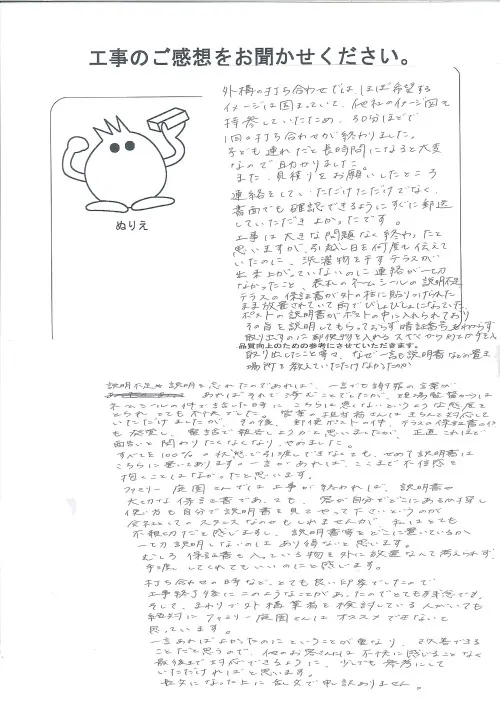 工事のご感想をお聞かせください。
外構の打ち合わせでは、ほぼ希望する
イメージは固まっていて、他社のイメージ図を
持参していたため、30分ほどで
1回の打ち合わせが終わりました。
子ども連れだと長時間になると大変
なので助かりました。
また、見積りをお願いしたところ
連絡をしていただけただけでなく、
書面でも確認できるようにすぐに郵送
していただき よかったです。
工事は大きな問題なく終わったと
思いますが、引越し日を何度も伝えて
いたのに、洗濯物を干すテラスが
出来上がっていないのに連絡が一切
なかったこと、表札のネームシールの説明不足
テラスの保証書が外の柱に貼りつけられた
まま放置されていて雨でびしょびしょになっていた、
ポストの説明書がポストの中に入れられており
その旨を説明してもらっておらず暗証番号もわからず
ぬりえ
品質向上のための参考にさせていただきます。
取り出したこと等々、なぜ一言も説明書などの置き
場所を教えていただけなかったのか
説明不足や説明を忘れたのであれば、一言でも謝罪の言葉が
あればそれで済むことでしたが、現場監督からは
ネームシールの件で言った時に こちらは悪くないというような態度を
とられ とても不快でした。営業の担当者さんはきちんと対応して
いただけましたが、その後、郵便ポストの件、テラスの保証書の件
も発覚し、電話で報告しようかと思いましたが、正直これほど
面倒と関わりたくなくなり、やめました。
すべてを100%の状態で引渡しできなくても、せめて説明書は
こちらに置いてあります の一言があれば、ここまで不信感を
抱くことはなかったと思います。
ファミリー庭園さんでは工事が終われば、説明書や
大切な保証書であっても、客が自分でどこにあるか探し
使い方も自分で説明書を見てやって下さいというのが
会社としてのスタンスなのかもしれませんが、私はとても
不親切だと感じますし、説明書等をどこに置いているか
一切説明しないのはあり得ないと思います。
むしろ 保証書も入っている物を外に放置なんて考えられず、
手渡ししてくれてもいいのにと感じます。
打ち合わせの時など、とても良い印象でしたので
工事終了後にこのようなことがあったのでとても残念です。
そして、まわりで外構業者を検討している人がいても
絶対に ファミリー庭園さんは オススメできないと
思っています。
一言あればよかったのにということが重なり、改善できる
ことだと思うので、他のお客さんには不快に感じることなく
最後まで対応できるように、少しでも参考にして
いただければと思います。
長文になった上に乱文で申し訳ありません。